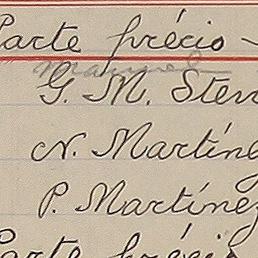 Parte précio -
Manuel
G. M. Stev
N. Martínez
P. Martínez
Parte précio